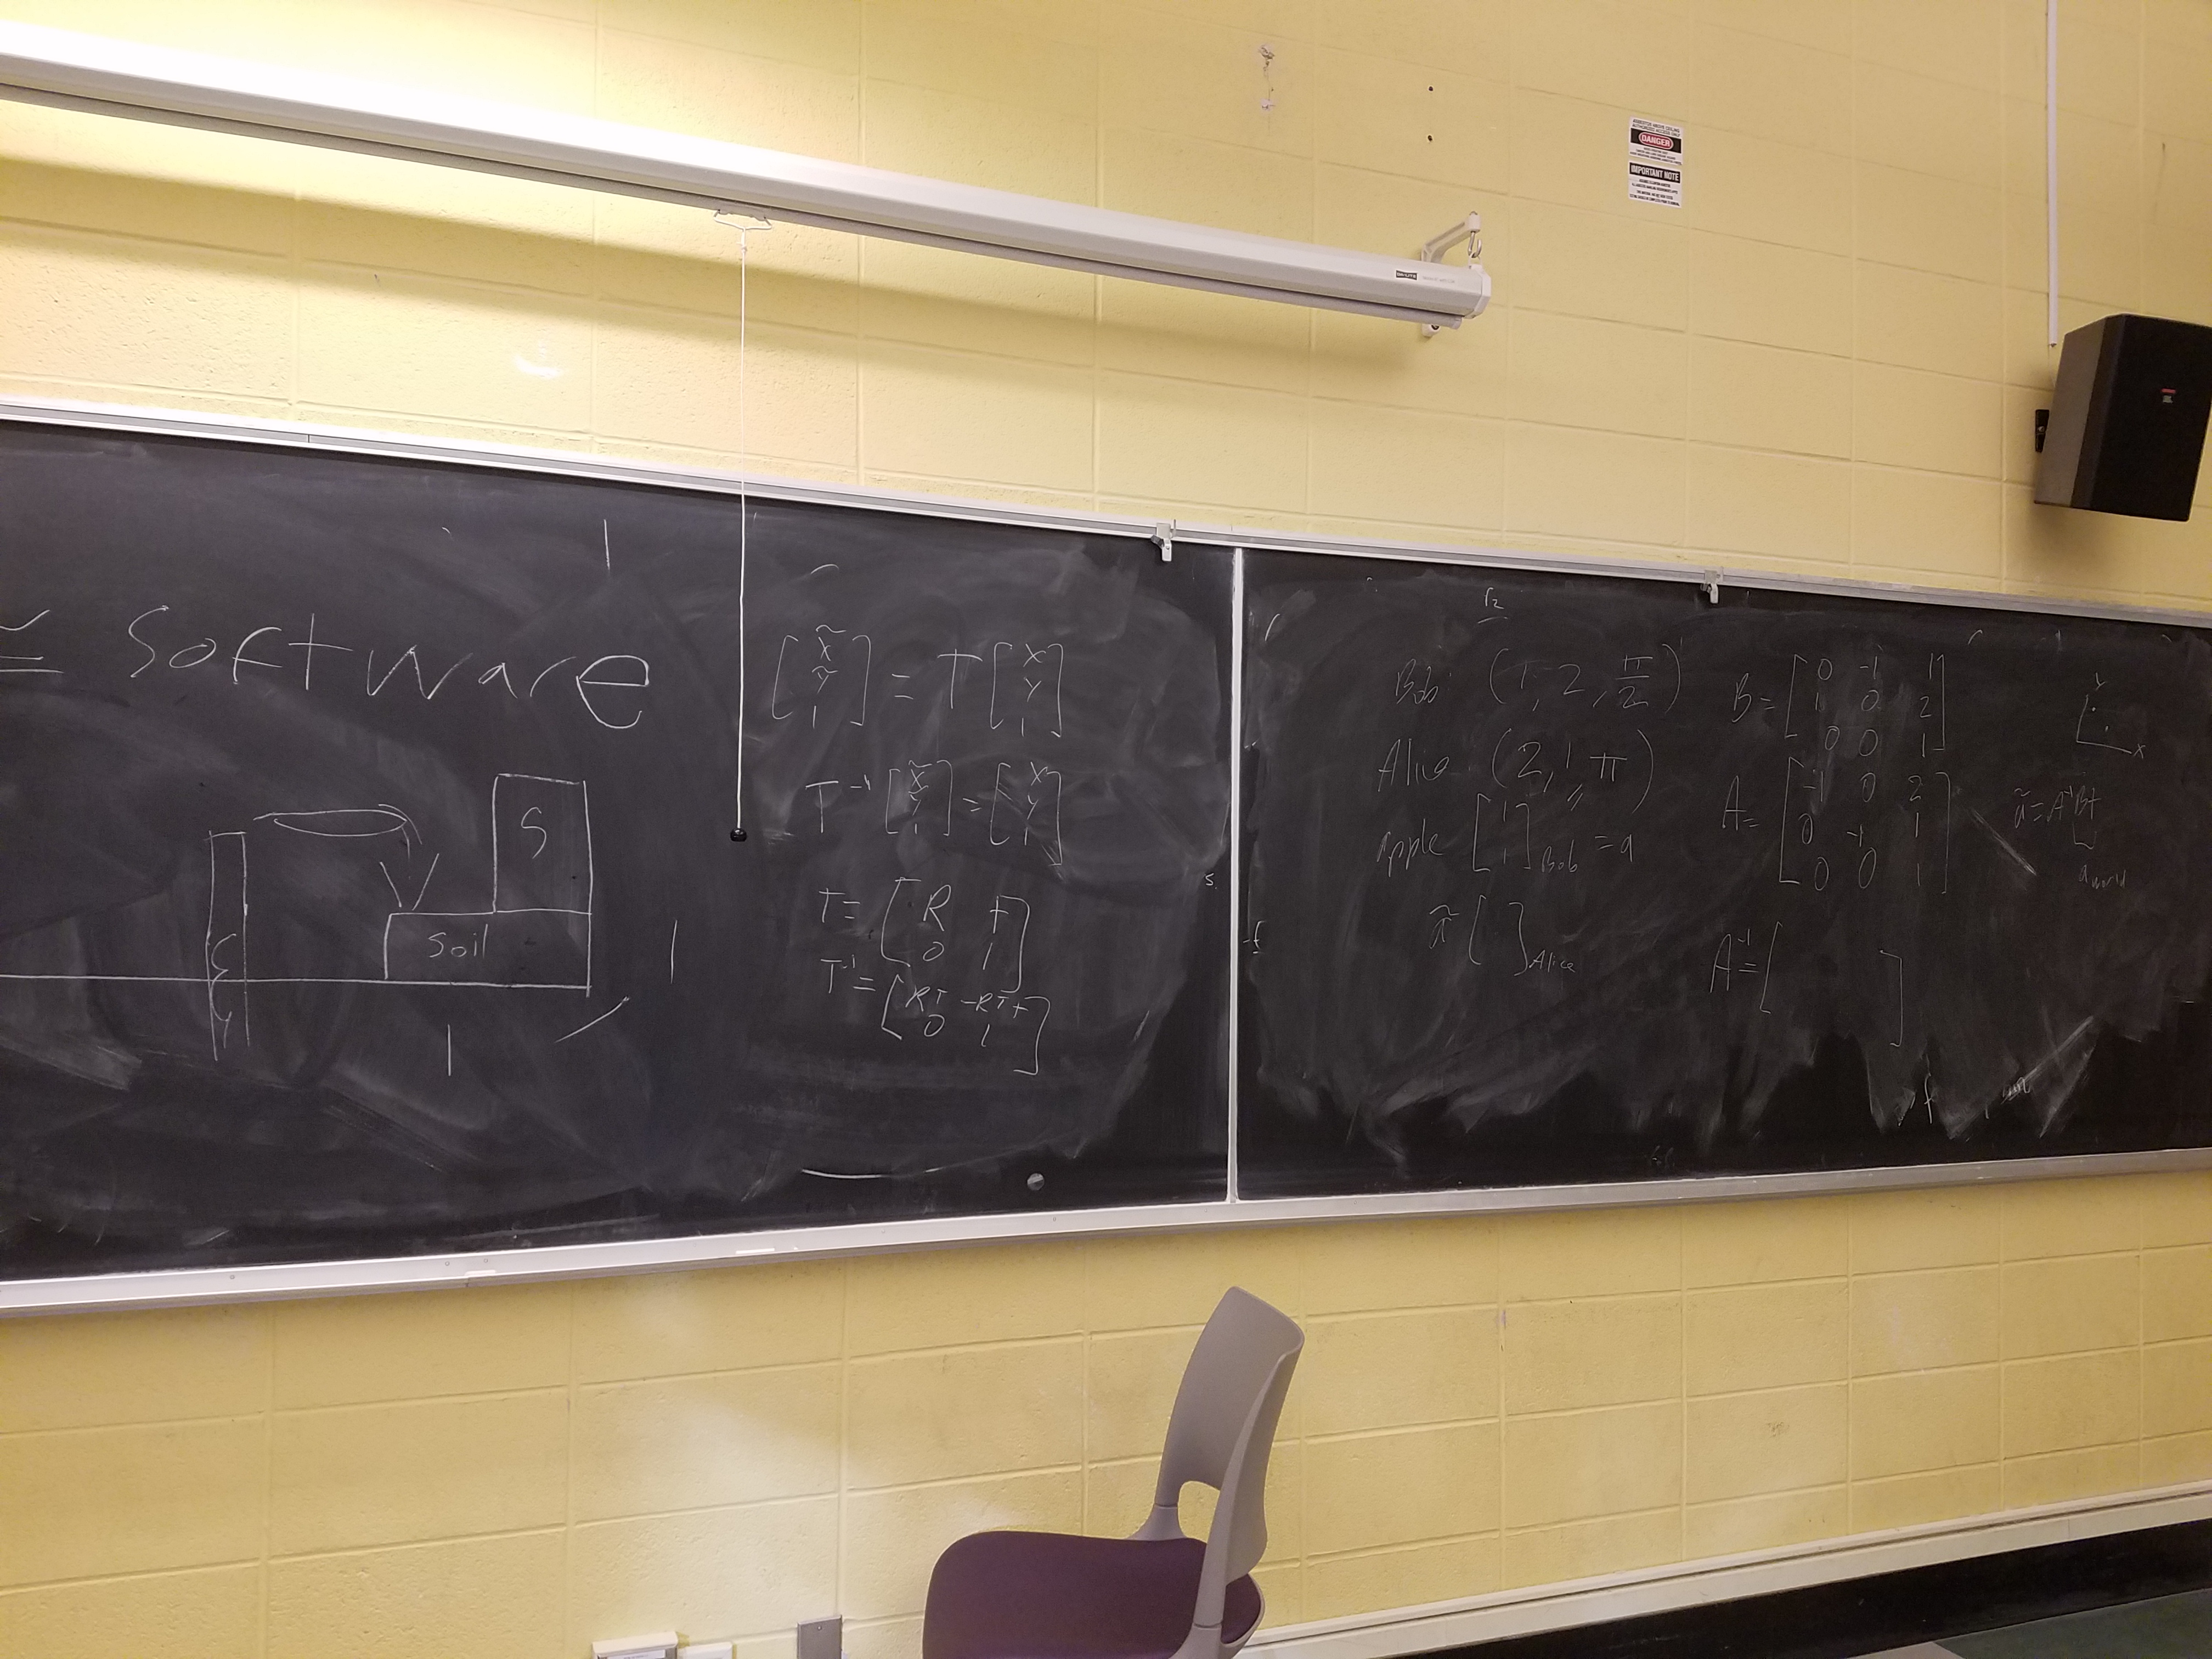 DANGER
IMPORTANT NOTE
≅ Software
S
soil
[x̃ ỹ 1] = T [x y 1]
T⁻¹ [x̃ ỹ 1] = [x y 1]
T = [R t
0 1]
T⁻¹ = [Rᵀ -Rᵀt
0 1]
r₂
Bob: (1, 2, π/2)
Alice: (2, 1, π)
apple [1 1]Bob = a
ã [ ]Alice
B = [0 -1 1
1 0 2
0 0 1]
A = [-1 0 2
0 -1 1
0 0 1]
A⁻¹ = [ ]
y
x
a world